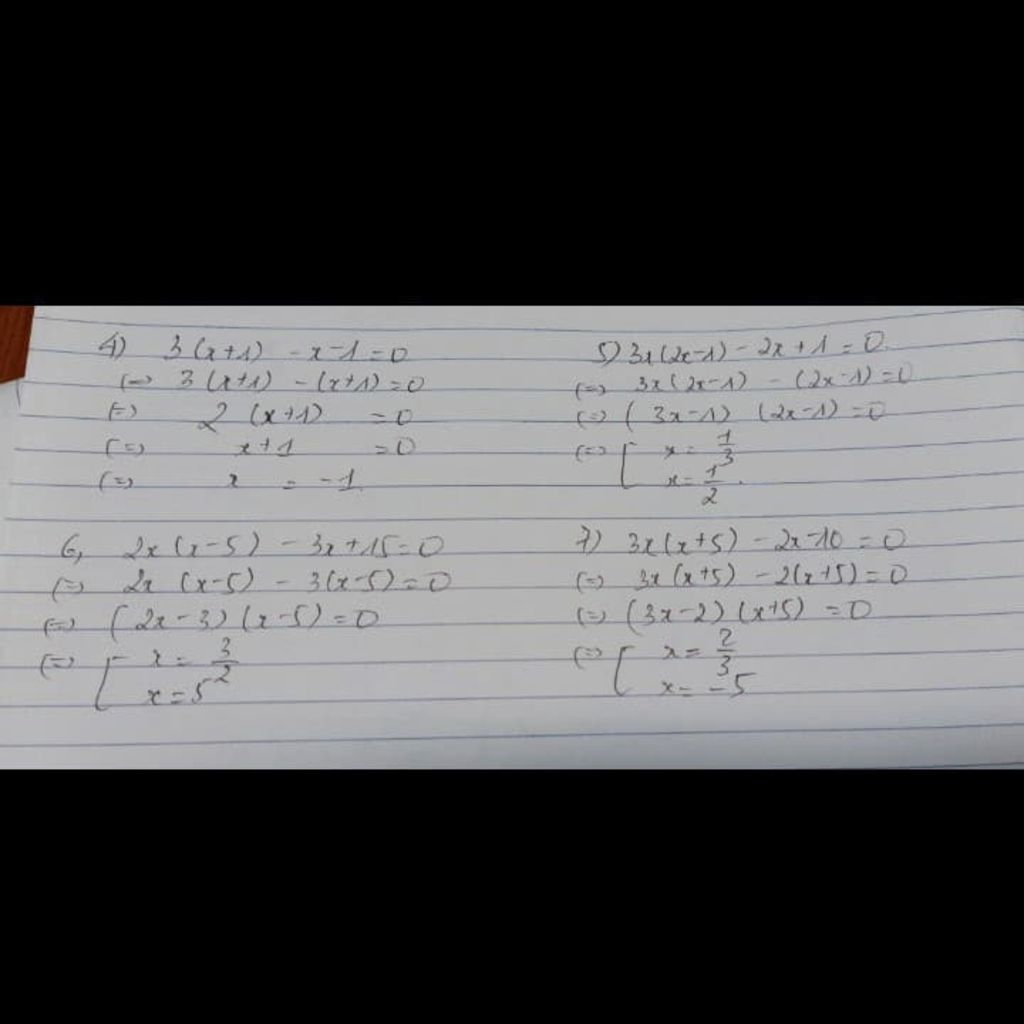 4) 3(x+1) -x-1=0
(=) 3(x+1) -(x+1)=0
(=) 2 (x+1) =0
(=) x+1 =0
(=) x = -1
5) 3x(2x-1) - 2x+1=0
(=) 3x(2x-1) - (2x-1)=0
(=) (3x-1) (2x-1)=0
(=) [ x = 1/3
x = 1/2.
6, 2x(x-5) - 3x+15=0
(=) 2x (x-5) - 3(x-5)=0
(=) (2x-3)(x-5)=0
(=) [ x = 3/2
x=5
7) 3x(x+5) - 2x-10 = 0
(=) 3x(x+5) -2(x+5)=0
(=) (3x-2)(x+5) =0
(=) [ x = 2/3
x = -5